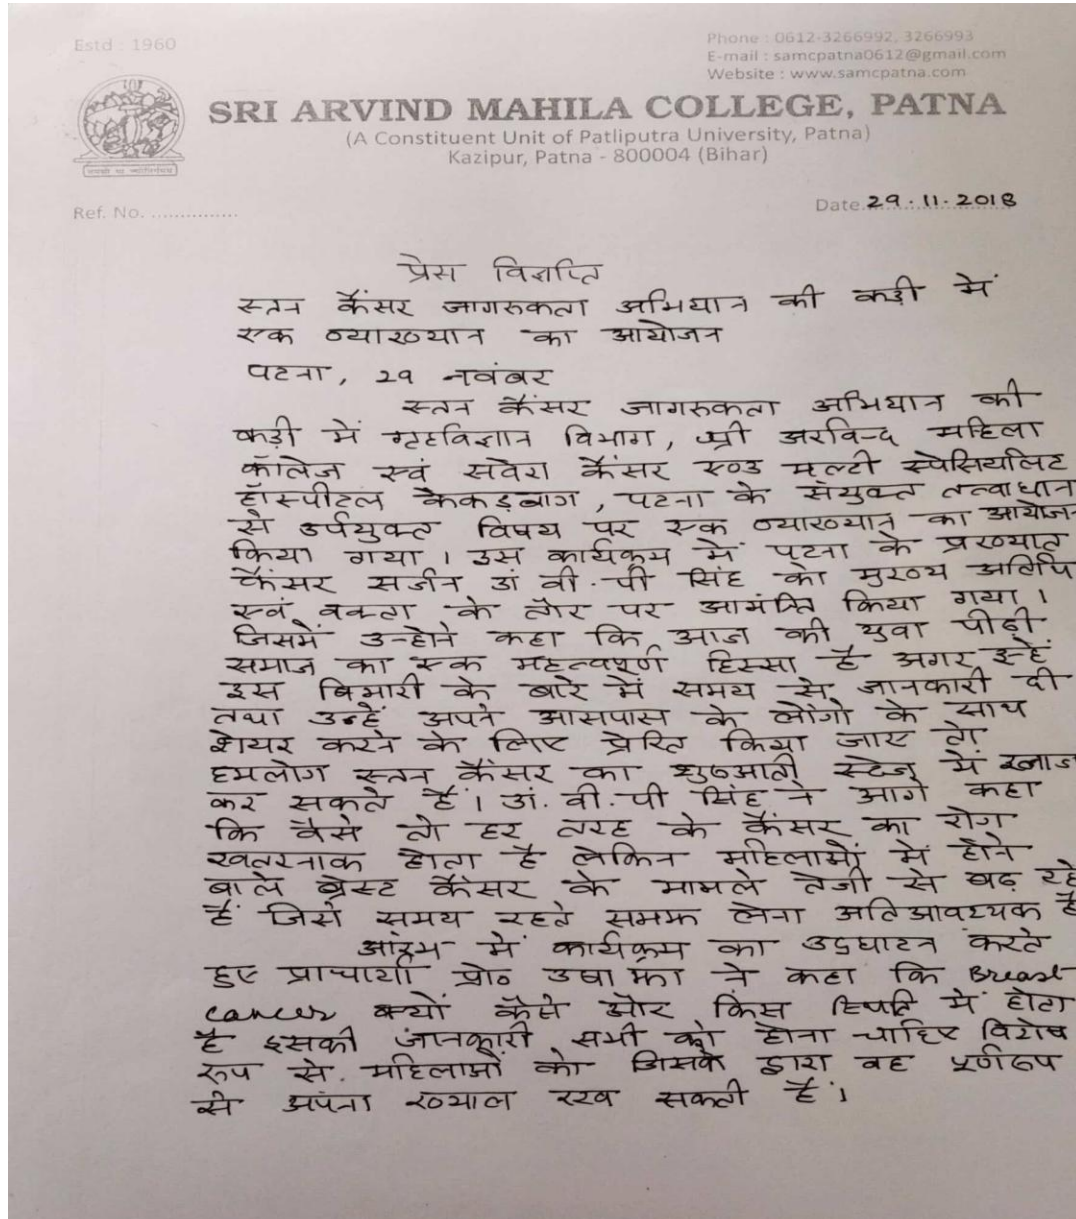 Estd : 1960
Phone : 0612-3266992, 3266993
E-mail : samcpatna0612@gmail.com
Website : www.samcpatna.com
SRI ARVIND MAHILA COLLEGE, PATNA
(A Constituent Unit of Patliputra University, Patna)
Kazipur, Patna - 800004 (Bihar)
Ref. No. ...............
Date 29.11.2018
प्रेस विज्ञप्ति
स्तन कैंसर जागरुकता अभियान की कड़ी में
एक व्याख्यान का आयोजन
पटना, 29 नवंबर
स्तन कैंसर जागरुकता अभियान की
कड़ी में गृहविज्ञान विभाग, श्री अरविन्द महिला
कॉलेज एवं सवेरा कैंसर एण्ड मल्टी स्पेसियलिटि
हॉस्पीटल कंकड़बाग, पटना के संयुक्त तत्वाधान
से उर्पयुक्त विषय पर एक व्याख्यान का आयोजन
किया गया। उस कार्यक्रम में पटना के प्रख्यात
कैंसर सर्जन डॉ वी.पी सिंह को मुख्य अतिथि
एवं वक्ता के तौर पर आमंत्रित किया गया।
जिसमें उन्होने कहा कि आज की युवा पीढ़ी
समाज का एक महत्वपूर्ण हिस्सा है अगर इन्हें
इस बिमारी के बारे में समय से जानकारी दी
तथा उन्हें अपने आसपास के लोंगो के साथ
शेयर करने के लिए प्रेरित किया जाए तो
हमलोग स्तन कैंसर का शुरुआती स्टेज में इलाज
कर सकते हैं। डॉ. वी.पी सिंह ने आगे कहा
कि वैसे तो हर तरह के कैंसर का रोग
खतरनाक होता है लेकिन महिलाओं में होने
वाले ब्रेस्ट कैंसर के मामले तेजी से बढ़ रहे
हैं जिसे समय रहते समझ लेना अतिआवश्यक है
में कार्यक्रम का उद्घाटन करते
हुए प्राचार्या प्रो० उषा झा ने कहा कि Breast
cancer क्यों कैसे और किस स्थिति में होता
है इसकी जानकारी सभी को होना चाहिए विशेष
रूप से महिलाओं को जिसके द्वारा वह पूर्णरूप
से अपना ख्याल रख सकती हैं।